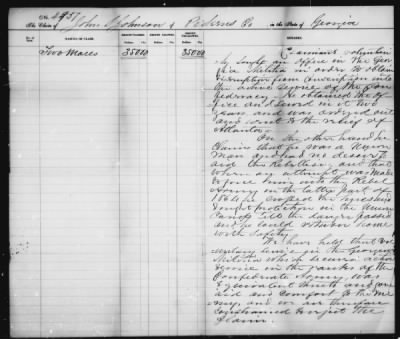 No. 2957
The Claim of John S Johnson of Pickens Co in the State of Georgia
NATURE OF CLAIM.
AMOUNT CLAIMED.
AMOUNT DISALLOWED.
REMARKS.
Two Mares 350 00 350 00
Claimant voluntar
ily sought an office in the Geor
gia Militia in order to obtain
exemption from conscription into
the active service of the Con
federacy. He obtained the of
fice and served in it two
years and was ordered out
and went to the relief of
Atlanta.
On the other hand he
claims that he was a Union
man and had no desire to
aid the Rebellion and that
when an attempt was made
to force him into the Rebel
Army in the latter part of
1864 he crossed the lines and
sought protection in the Union
Camp till the danger passed
and he could return home
with safety.
We have held that vol
untary service in the Georgia
Militia which secured
service in the ranks of the
Confederate Army was
equivalent and
aid and comfort to the ene
my, and we are therefore
constrained to reject the
claim.